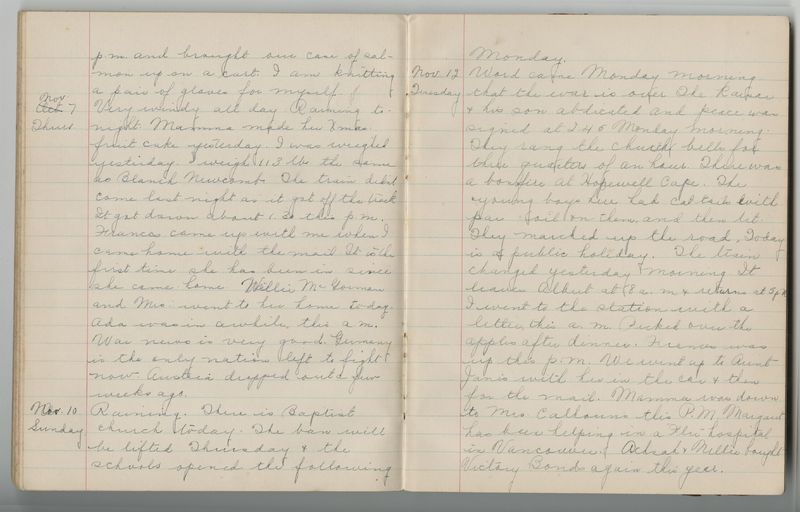 p.m. and brought our case of sal-
mon up on a cart. I am knitting
a pair of gloves for myself.
Nov. Oct 7 Very windy all day Raining to-
Thurs night. Mamma made her Xmas
fruit cake yesterday. I was weighed
yesterday. I weigh 113 lbs the same
as Blanch Newcomb. The train didnt
come last night as it got off the track
It got down about 1.30 this p.m.
Frances came up with me when I
came home with the mail It is the
first time she has been in since
she came home Willie Mc Gorman
and Mrs. went to her home today
Ada was in awhile, this a.m.
War news is very good. Germany
is the only nation left to fight
now. Austria dropped out a few
weeks ago.
Nov. 10 Raining. There is Baptist
Sunday church today. The ban will
be lifted Thursday & the
schools opened the following
Monday.
Nov. 12 Word came Monday morning
Tuesday that the war is over The Kaiser
& his son abdicated and peace was
signed at 2.45 Monday morning.
They rang the church bells for
three quarters of an hour. There was
a bonfire at Hopewell Cape. The
young boys here had cat tails with
par oil on them, and then lit.
They marched up the road. Today
is a public holiday. The train
changed yesterday morning It
leaves Albert at 8 a.m. & returns at 5 p.m
I went to the station with a
letter this a.m. Picked over the
apples after dinner. Frances was
up this p.m. We went up to Aunt
Janie with her in the car & then
for the mail. Mamma was down
to Mrs. Calhouns this P.M. Margaret
has been helping in a "Flu" hospital
in Vancouver. Achsah & Nellie bought
Victory Bonds again this year.